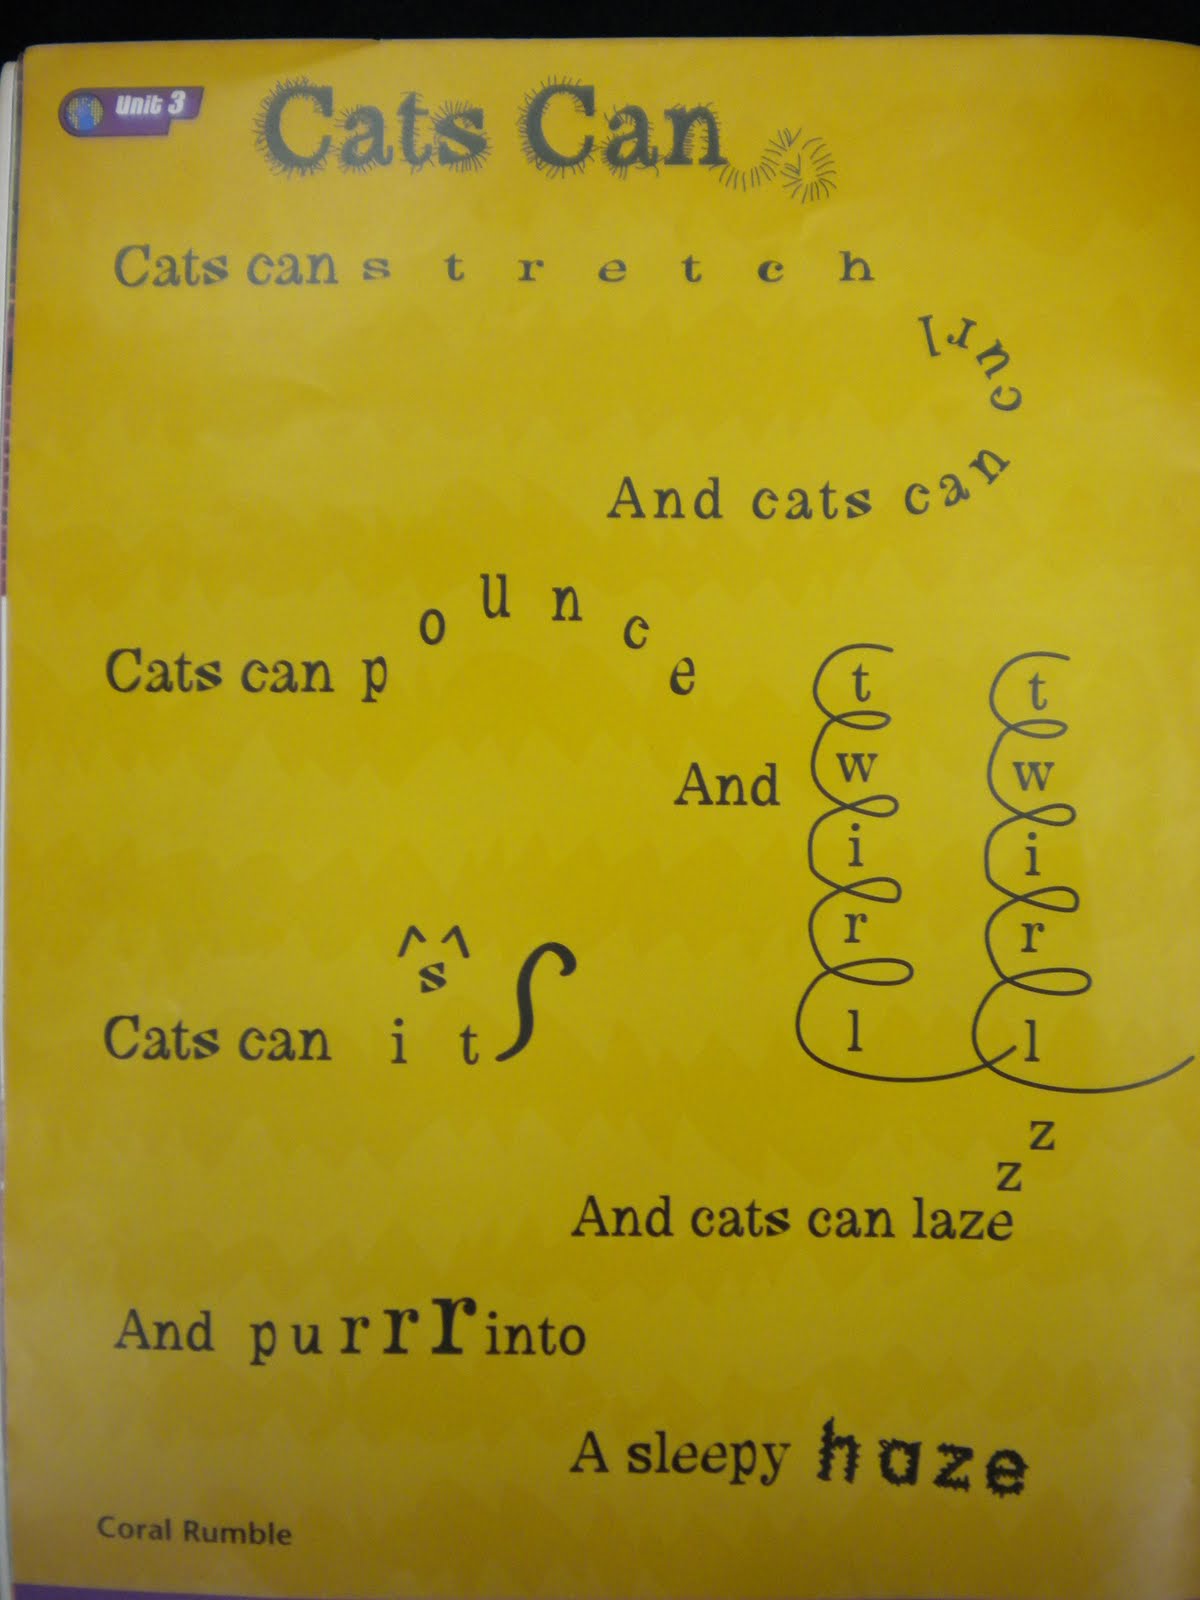 Unit 3
Cats Can
Cats can stretch
And cats can curl
Cats can pounce
And twirl twirl
Cats can sit
And cats can laze zz
And purrrr into
A sleepy haze
Coral Rumble